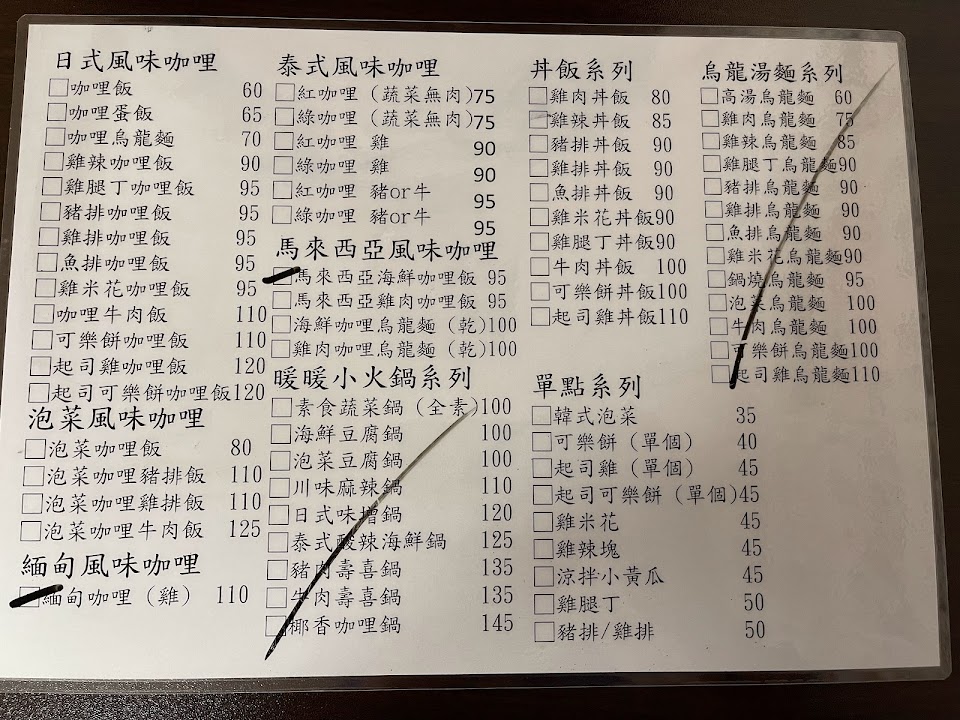 日式風味咖哩
咖哩飯 60
咖哩蛋飯 65
咖哩烏龍麵 70
雞辣咖哩飯 90
雞腿丁咖哩飯 95
豬排咖哩飯 95
雞排咖哩飯 95
魚排咖哩飯 95
雞米花咖哩飯 95
咖哩牛肉飯 110
可樂餅咖哩飯 110
起司雞咖哩飯 120
起司可樂餅咖哩飯120
泡菜風味咖哩
泡菜咖哩飯 80
泡菜咖哩豬排飯 110
泡菜咖哩雞排飯 110
泡菜咖哩牛肉飯 125
緬甸風味咖哩
緬甸咖哩（雞） 110
泰式風味咖哩
紅咖哩（蔬菜無肉)75
綠咖哩（蔬菜無肉)75
紅咖哩 雞 90
綠咖哩 雞 90
紅咖哩 豬or牛 95
綠咖哩 豬or牛 95
馬來西亞風味咖哩
馬來西亞海鮮咖哩飯 95
馬來西亞雞肉咖哩飯 95
海鮮咖哩烏龍麵（乾)100
雞肉咖哩烏龍麵（乾)100
暖暖小火鍋系列
素食蔬菜鍋（全素)100
海鮮豆腐鍋 100
泡菜豆腐鍋 100
川味麻辣鍋 110
日式味增鍋 120
泰式酸辣海鮮鍋 125
豬肉壽喜鍋 135
牛肉壽喜鍋 135
椰香咖哩鍋 145
丼飯系列
雞肉丼飯 80
雞辣丼飯 85
豬排丼飯 90
雞排丼飯 90
魚排丼飯 90
雞米花丼飯90
雞腿丁丼飯90
牛肉丼飯 100
可樂餅丼飯100
起司雞丼飯110
單點系列
韓式泡菜 35
可樂餅（單個） 40
起司雞（單個） 45
起司可樂餅（單個)45
雞米花 45
雞辣塊 45
涼拌小黃瓜 45
雞腿丁 50
豬排/雞排 50
烏龍湯麵系列
高湯烏龍麵 60
雞肉烏龍麵 75
雞辣烏龍麵 85
雞腿丁烏龍麵90
豬排烏龍麵 90
雞排烏龍麵 90
魚排烏龍麵 90
雞米花烏龍麵90
鍋燒烏龍麵 95
泡菜烏龍麵 100
牛肉烏龍麵 100
可樂餅烏龍麵100
起司雞烏龍麵110